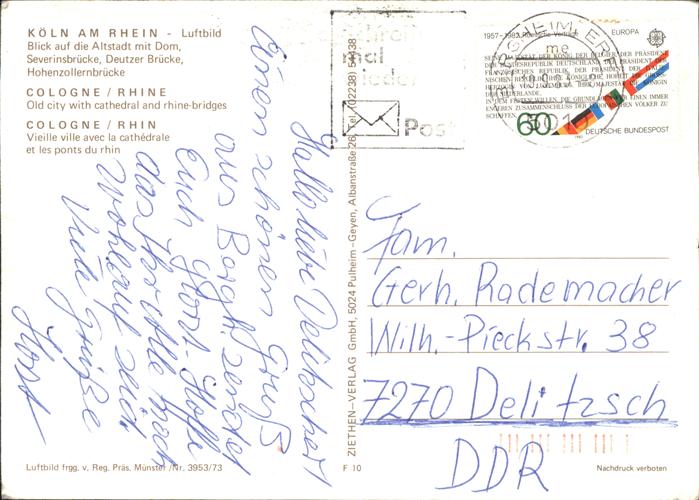 KÖLN AM RHEIN - Luftbild
Blick auf die Altstadt mit Dom,
Severinsbrücke, Deutzer Brücke,
Hohenzollernbrücke
COLOGNE / RHINE
Old city with cathedral and rhine-bridges
COLOGNE / RHIN
Vieille ville avec la cathédrale
et les ponts du rhin
Hallo liebe Delitzscher!
Einen schönen Gruß
aus Bergh. sendet
Euch Horst. Hoffe
das Ihr alle noch
wohlauf seid
Viele Grüße
Horst
Luftbild frgg. v. Reg. Präs. Münster/Nr. 3953/73
ZIETHEN-VERLAG GmbH, 5024 Pulheim-Geyen, Albanstraße 26, Tel. (02238) 54438
F 10
Post
1957-1982 Römische Verträge EUROPA
60
DEUTSCHE BUNDESPOST
Fam.
Gerh. Rademacher
Wilh.-Pieckstr. 38
7270 Delitzsch
DDR
Nachdruck verboten